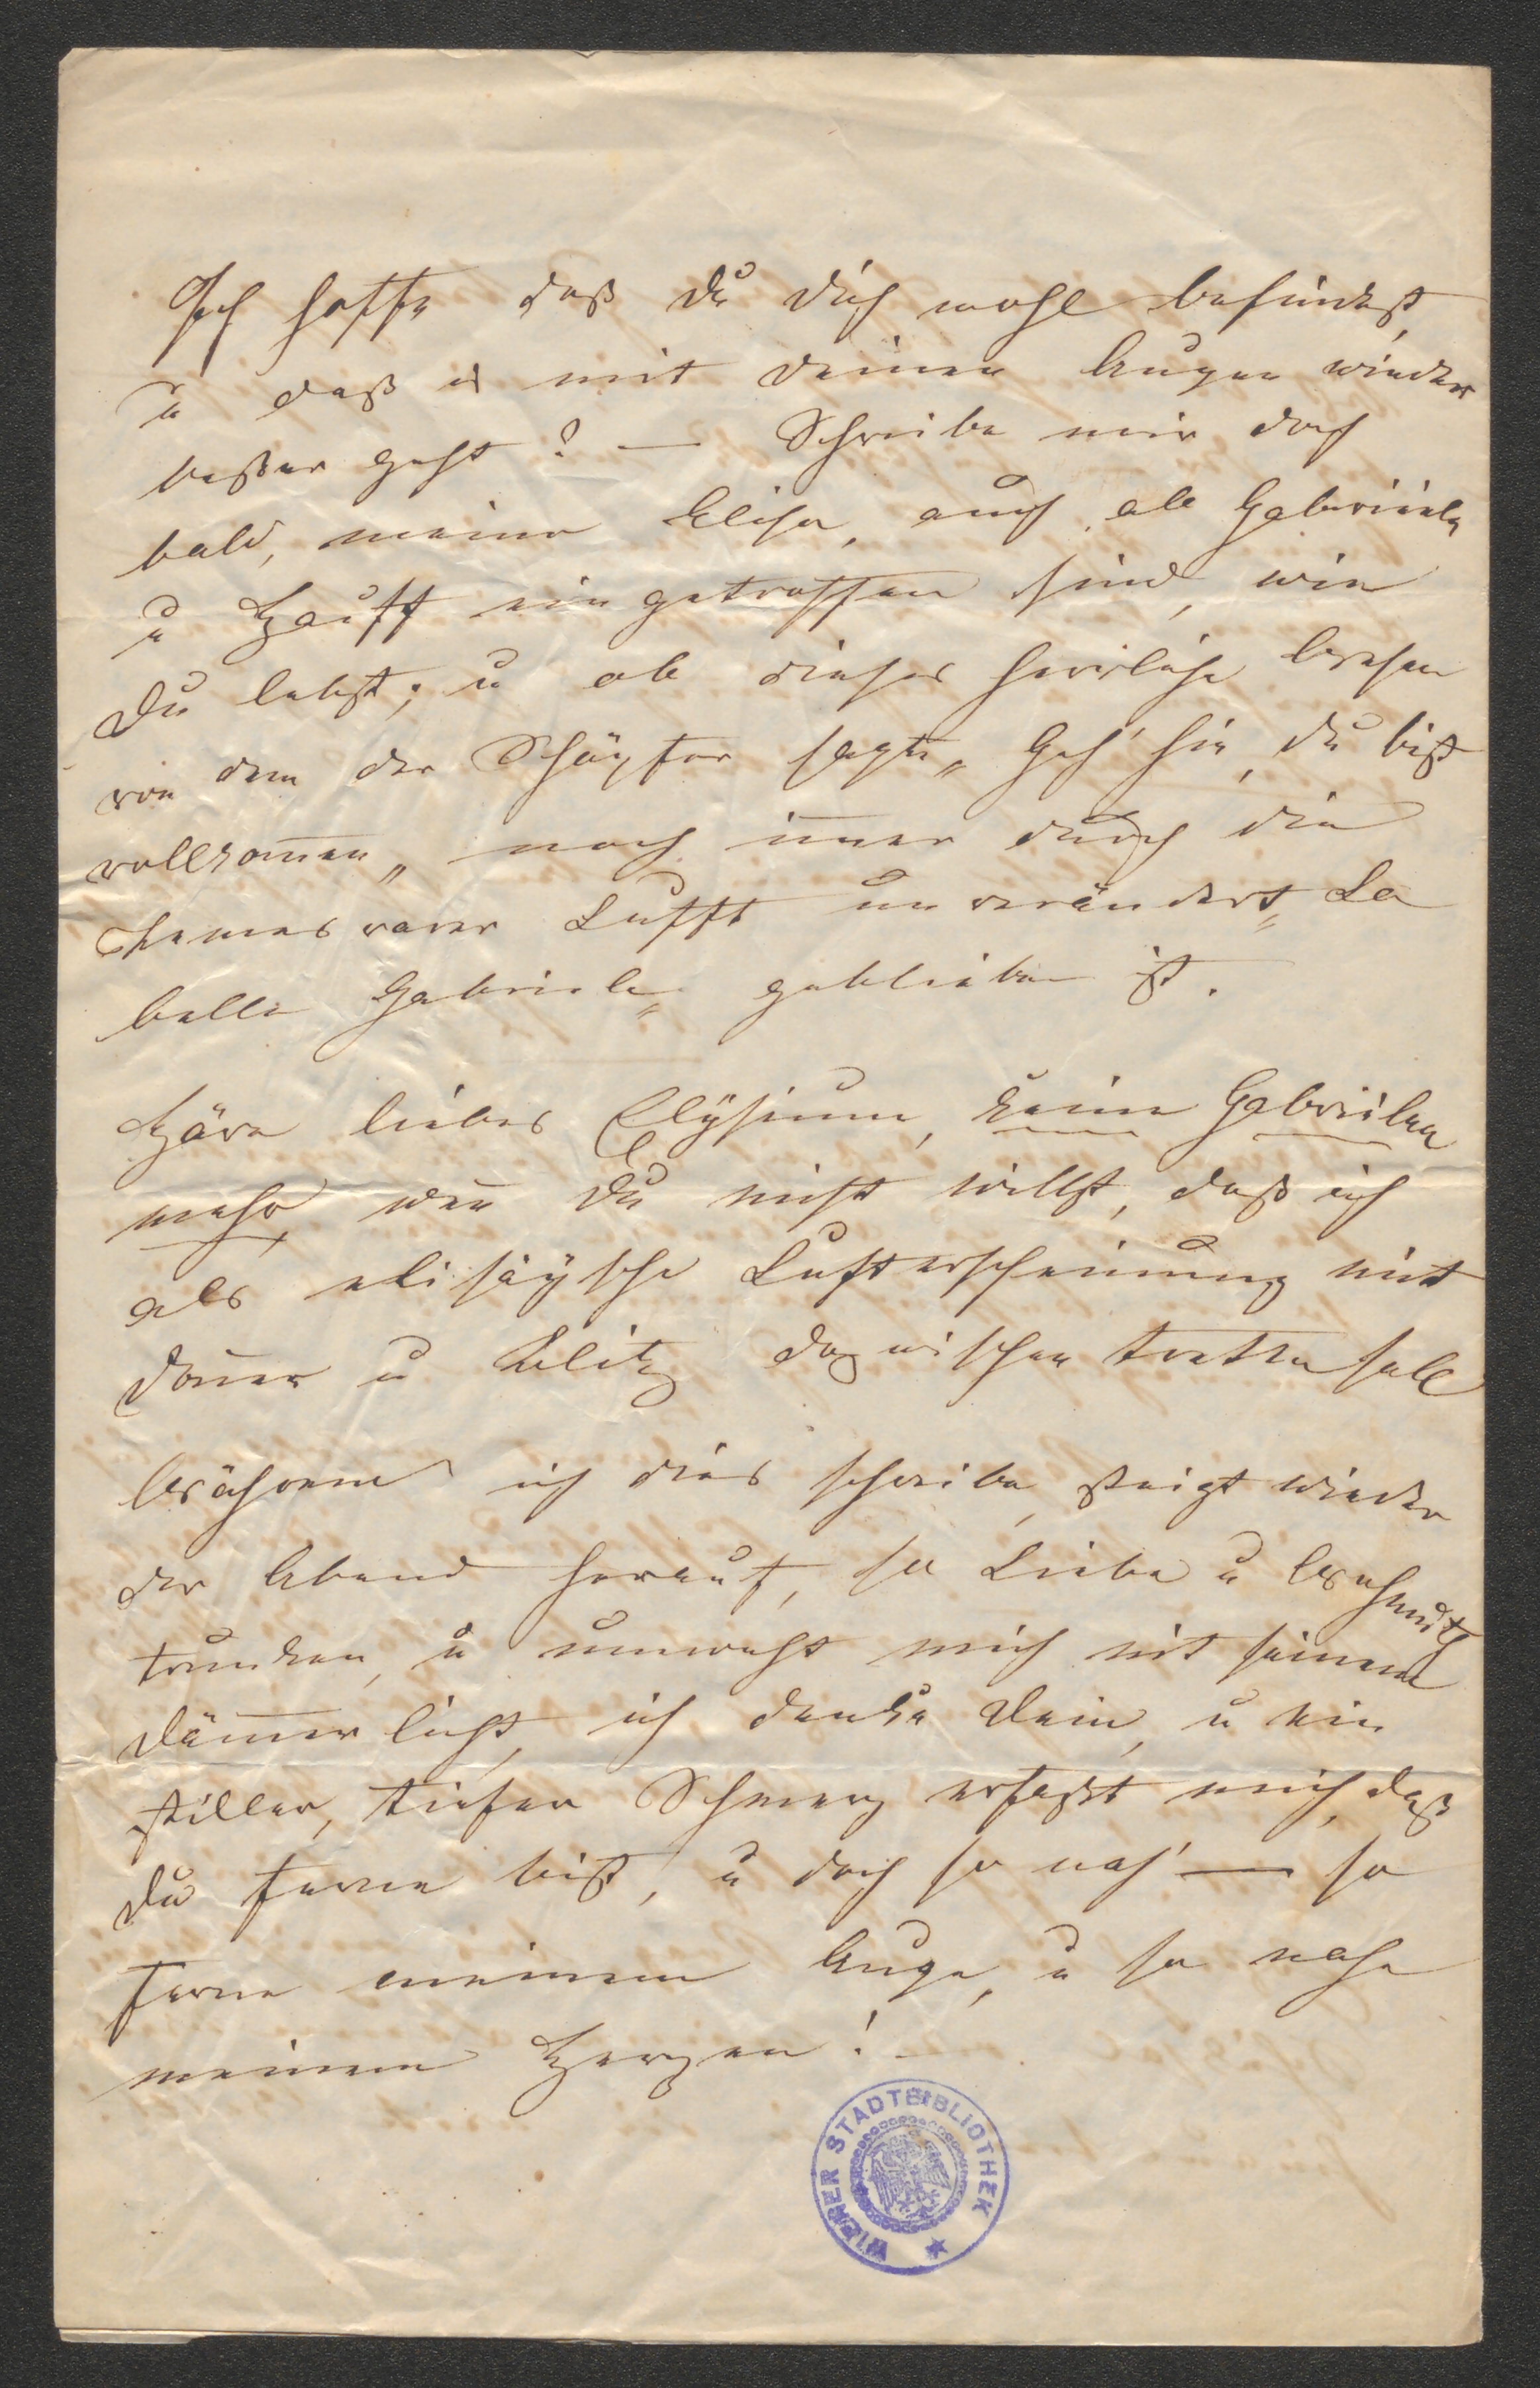 Ich hoffe daß Du Dich wohl befindest,
u daß es mit Deinen Augen wieder
beßer geht? — Schreibe mir doch
bald, meine Elise, auch ob Gabriele
u Hauff eingetroffen sind, wie
Du lebst, u ob dieses herrliche Wesen
von dem der Schöpfer sagte „Geh' hin, du bist
vollkom̅en„ noch im̅er durch die
Themesvarer Lufft unverändert „La
belle Gabriele„ geblieben ist.
Höre liebes Elÿsium, keine Gabrielen
mehr, wen̅ Du nicht willst, daß ich
als elisäÿsche Lufterscheinung mit
Don̅er u Blitz dazwischen tretten soll
Während ich dies schreibe, steigt wieder
der Abend herauf, so Liebe u Wehmuth
trunken, u umweht mich mit seinem
Däm̅erlicht, ich denke Dein, u ein
stiller, tiefer Schmerz erfaßt mich, daß
Du ferne bist, u doch so nah' — so
ferne meinem Auge, u so nahe
meinem Herzen! —
WIENER STADTBIBLIOTHEK